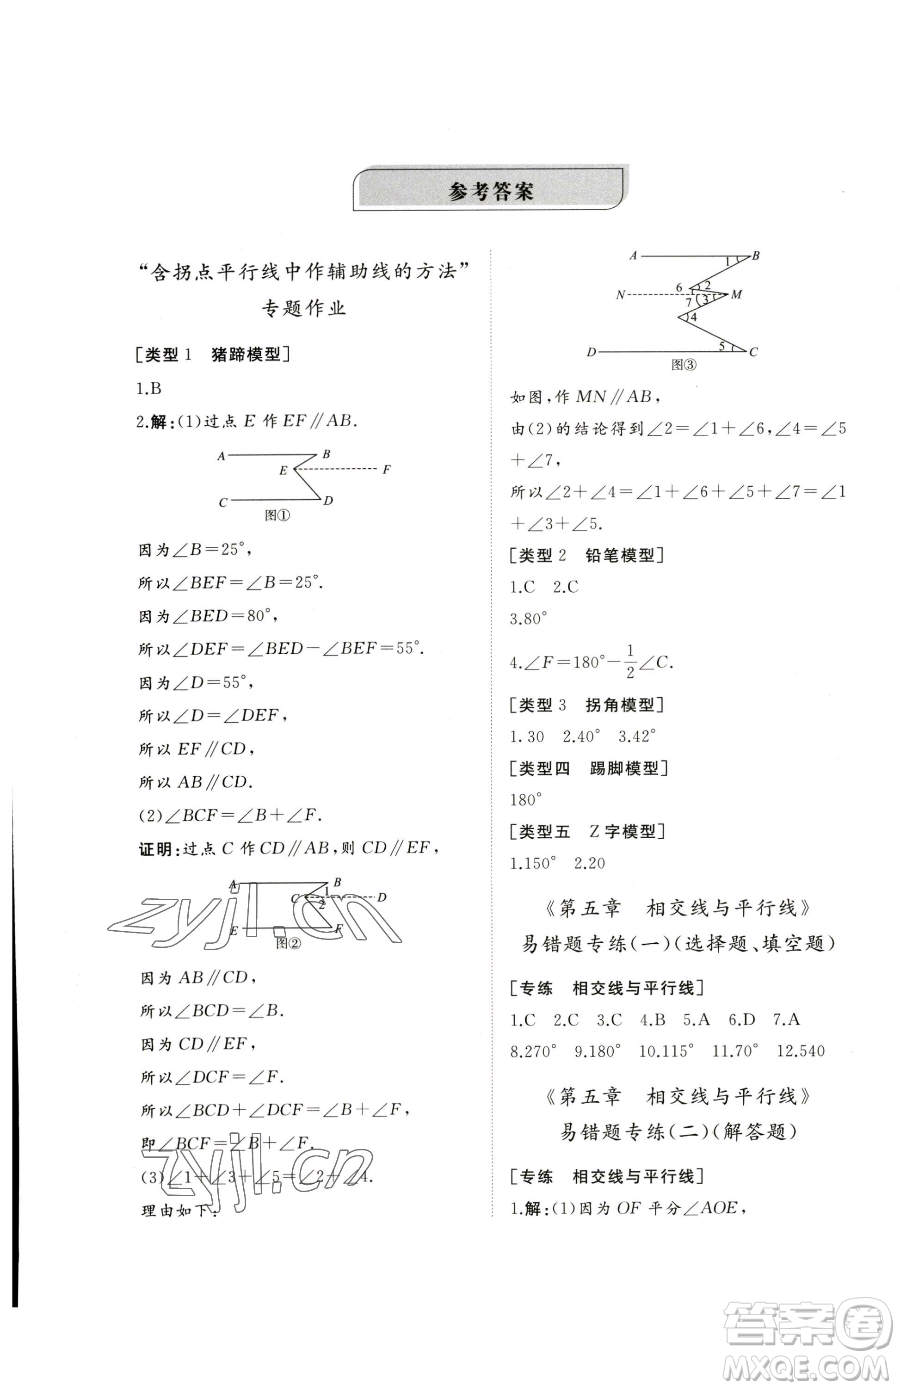 参考答案
“含拐点平行线中作辅助线的方法”
专题作业
[类型1 猪蹄模型]
1.B
2.解:(1)过点E作EF∥AB.
A B
E F
C D
图①
因为∠B=25°,
所以∠BEF=∠B=25°.
因为∠BED=80°,
所以∠DEF=∠BED-∠BEF=55°.
因为∠D=55°,
所以∠D=∠DEF,
所以EF∥CD,
所以AB∥CD.
(2)∠BCF=∠B+∠F.
证明:过点C作CD∥AB,则CD∥EF,
A B
C 1 D
2
E F
图②
因为AB∥CD,
所以∠BCD=∠B.
因为CD∥EF,
所以∠DCF=∠F.
所以∠BCD+∠DCF=∠B+∠F,
即∠BCF=∠B+∠F.
(3)∠1+∠3+∠5=∠2+∠4.
理由如下:
A 1 B
6 2
N 7 3 M
4
D 5 C
图③
如图,作MN∥AB,
由(2)的结论得到∠2=∠1+∠6,∠4=∠5
+∠7,
所以∠2+∠4=∠1+∠6+∠5+∠7=∠1
+∠3+∠5.
[类型2 铅笔模型]
1.C 2.C
3.80°
4.∠F=180°-1/2∠C.
[类型3 拐角模型]
1.30 2.40° 3.42°
[类型四 踢脚模型]
180°
[类型五 Z字模型]
1.150° 2.20
《第五章 相交线与平行线》
易错题专练(一)(选择题、填空题)
[专练 相交线与平行线]
1.C 2.C 3.C 4.B 5.A 6.D 7.A
8.270° 9.180° 10.115° 11.70° 12.540
《第五章 相交线与平行线》
易错题专练(二)(解答题)
[专练 相交线与平行线]
1.解:(1)因为OF平分∠AOE,
zyjl.cn
zyjl.cn
答案圈
MXQE.COM